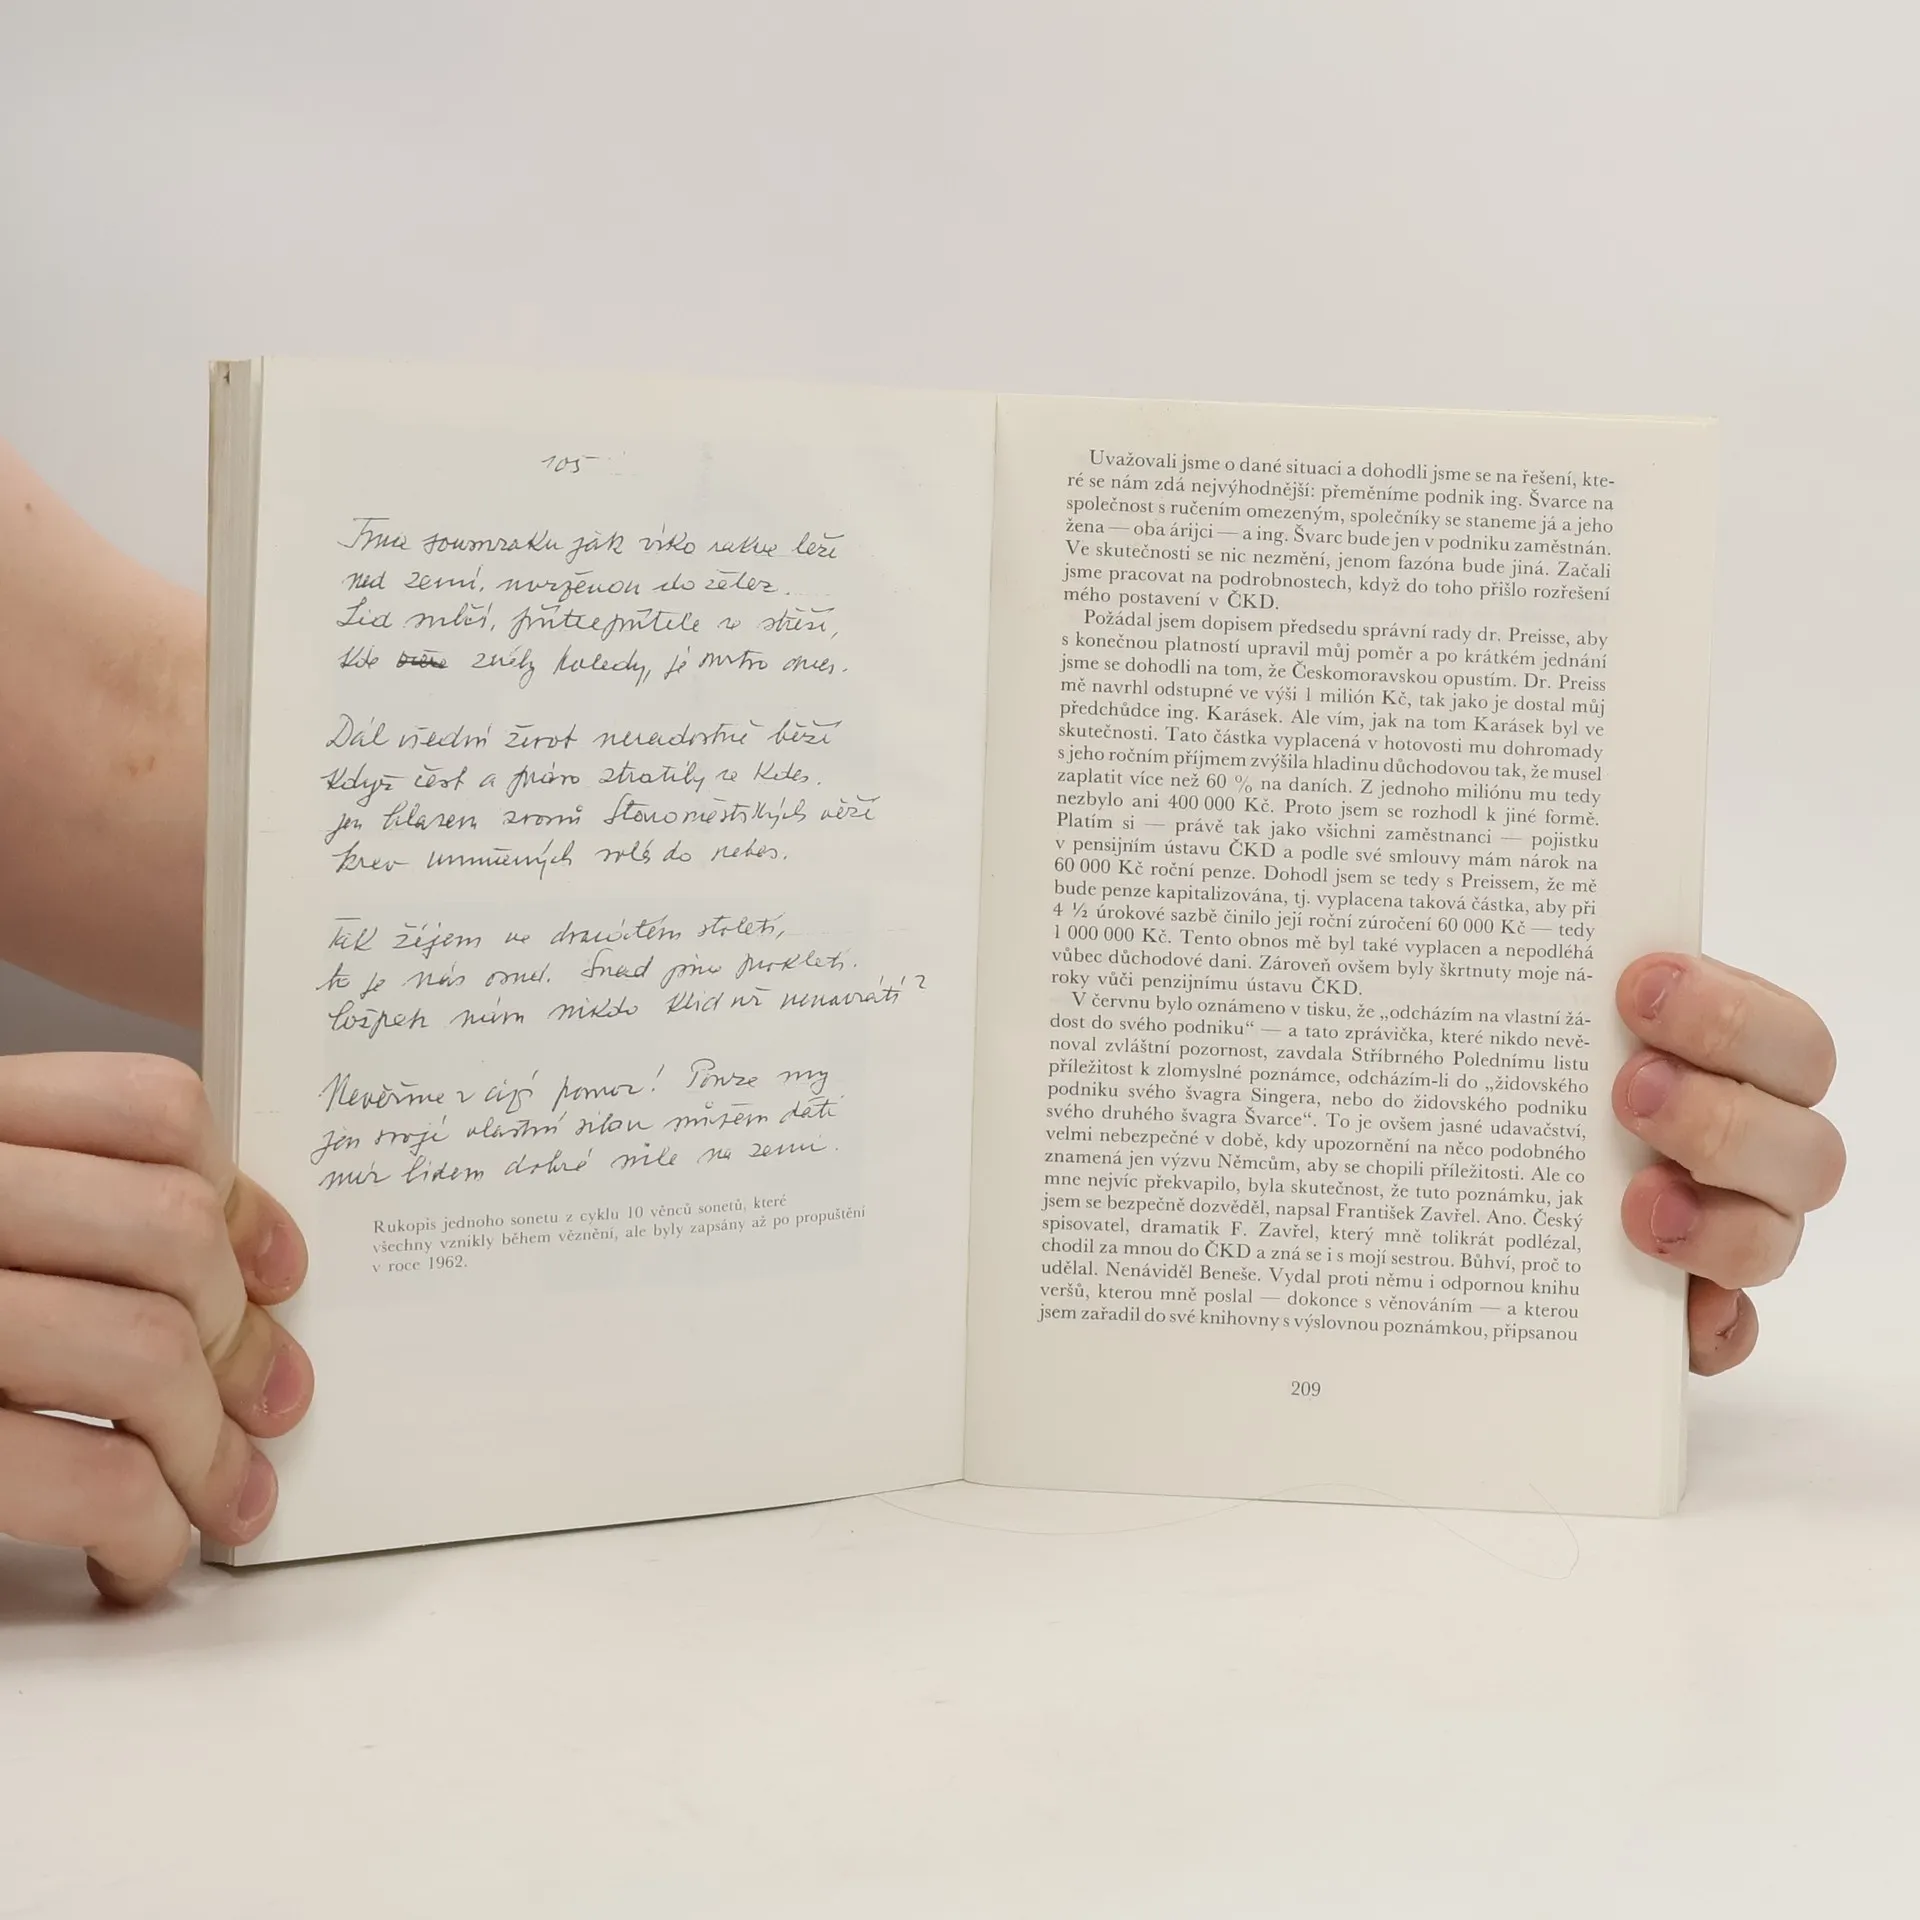 105
Tma soumraku jak víko rakve leží
nad zemí, uvrženou do želez.
Lid mlčí, přítel přítele se střeží,
kde zněly koledy, je mrtvo dnes.
Dál všední život neradostně běží
když čest a právo ztratily se kdes.
jen hlasem zvonů Staroměstských věží
krev umučených volá do nebes.
Tak žijem ve dvacátém století,
to je náš osud. Snad jsme prokletí.
Cožpak nám nikdo klid už nenavrátí?
Nevěřme v cizí pomoc! Pouze my
jen svojí vlastní silou můžem dáti
mír lidem dobré vůle na zemi.
Rukopis jednoho sonetu z cyklu 10 věnců sonetů, které
všechny vznikly během věznění, ale byly zapsány až po propuštění
v roce 1962.
Uvažovali jsme o dané situaci a dohodli jsme se na řešení, kte-
ré se nám zdá nejvýhodnější: přeměníme podnik ing. Švarce na
společnost s ručením omezeným, společníky se staneme já a jeho
žena — oba árijci — a ing. Švarc bude jen v podniku zaměstnán.
Ve skutečnosti se nic nezmění, jenom fazóna bude jiná. Začali
jsme pracovat na podrobnostech, když do toho přišlo rozřešení
mého postavení v ČKD.
Požádal jsem dopisem předsedu správní rady dr. Preisse, aby
s konečnou platností upravil můj poměr a po krátkém jednání
jsme se dohodli na tom, že Českomoravskou opustím. Dr. Preiss
mě navrhl odstupné ve výši 1 milión Kč, tak jako je dostal můj
předchůdce ing. Karásek. Ale vím, jak na tom Karásek byl ve
skutečnosti. Tato částka vyplacená v hotovosti mu dohromady
s jeho ročním příjmem zvýšila hladinu důchodovou tak, že musel
zaplatit více než 60 % na daních. Z jednoho miliónu mu tedy
nezbylo ani 400 000 Kč. Proto jsem se rozhodl k jiné formě.
Platím si — právě tak jako všichni zaměstnanci — pojistku
v pensijním ústavu ČKD a podle své smlouvy mám nárok na
60 000 Kč roční penze. Dohodl jsem se tedy s Preissem, že mě
bude penze kapitalizována, tj. vyplacena taková částka, aby při
4 ½ úrokové sazbě činilo její roční zúročení 60 000 Kč — tedy
1 000 000 Kč. Tento obnos mě byl také vyplacen a nepodléhá
vůbec důchodové dani. Zároveň ovšem byly škrtnuty moje ná-
roky vůči penzijnímu ústavu ČKD.
V červnu bylo oznámeno v tisku, že „odcházím na vlastní žá-
dost do svého podniku“ — a tato zprávička, které nikdo nevě-
noval zvláštní pozornost, zavdala Stříbrného Polednímu listu
příležitost k zlomyslné poznámce, odcházím-li do „židovského
podniku svého švagra Singera, nebo do židovského podniku
svého druhého švagra Švarce“. To je ovšem jasné udavačství,
velmi nebezpečné v době, kdy upozornění na něco podobného
znamená jen výzvu Němcům, aby se chopili příležitosti. Ale co
mne nejvíc překvapilo, byla skutečnost, že tuto poznámku, jak
jsem se bezpečně dozvěděl, napsal František Zavřel. Ano. Český
spisovatel, dramatik F. Zavřel, který mně tolikrát podlézal,
chodil za mnou do ČKD a zná se i s mojí sestrou. Bůhví, proč to
udělal. Nenáviděl Beneše. Vydal proti němu i odpornou knihu
veršů, kterou mně poslal — dokonce s věnováním — a kterou
jsem zařadil do své knihovny s výslovnou poznámkou, připsanou
209